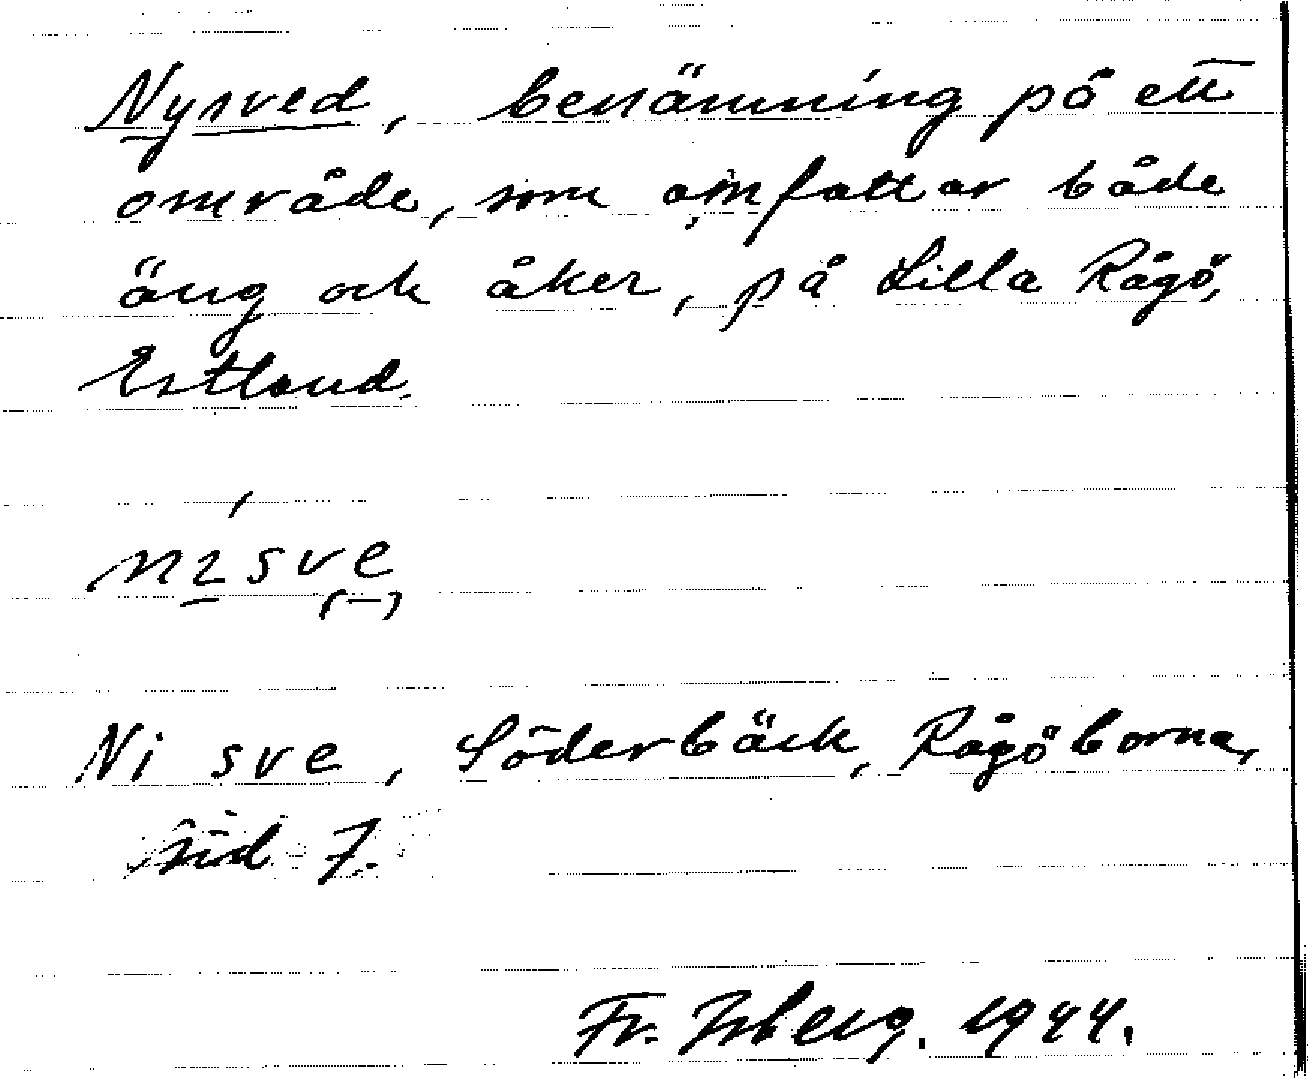 Nysved, benämning på ett
område, som omfattar både
äng och åker, på Lilla Rågö,
Estland.
nisve
Ni sve, Söderbäck, Rågöborna,
sid 7.
Fr. Isberg. 1944.